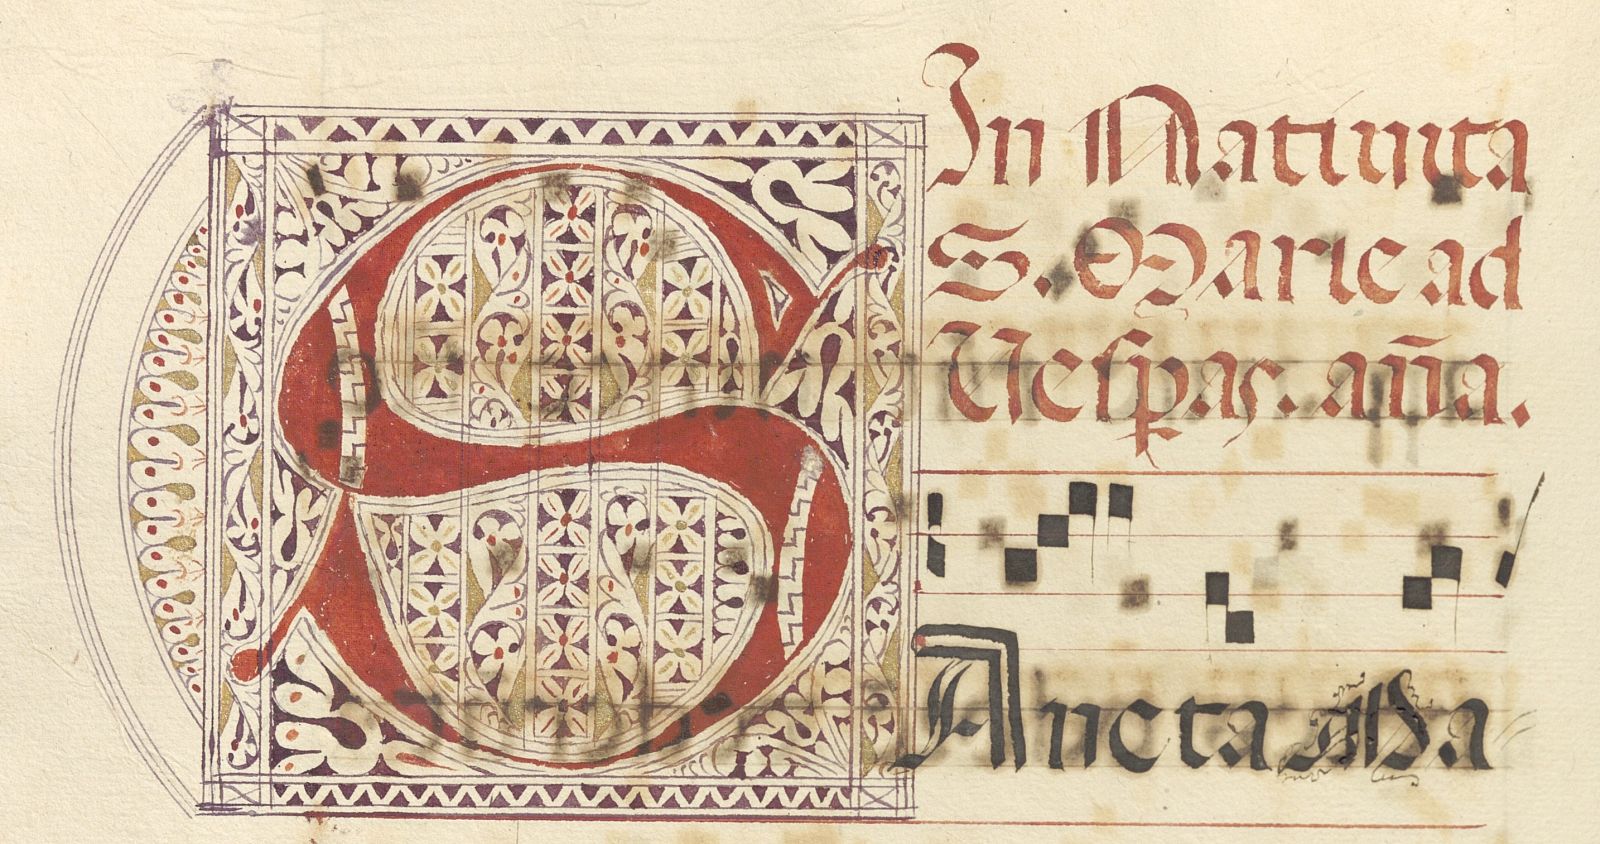 In Natiuita
S. Marie ad
Uespas. aña.
SAncta Ma